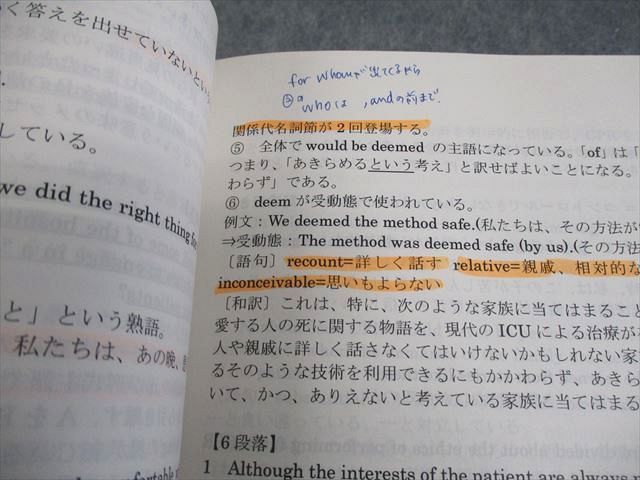 く答えを出せていないという
している。
we did the right thing for
と」という熟語。
私たちは、あの晩、
for whomが出てくるから
whoは , andの前まで.
関係代名詞節が2回登場する。
⑤ 全体で would be deemed の主語になっている。「of」は「
つまり、「あきらめるという考え」と訳せばよいことになる。
わらず」である。
⑥ deem が受動態で使われている。
例文：We deemed the method safe.(私たちは、その方法が
⇒受動態：The method was deemed safe (by us).(その方法
〔語句〕recount=詳しく話す relative=親戚、相対的な
inconceivable=思いもよらない
〔和訳〕これは、特に、次のような家族に当てはまること
愛する人の死に関する物語を、現代のICUによる治療が
人や親戚に詳しく話さなくてはいけないかもしれない家
るそのような技術を利用できるにもかかわらず、あきら
いて、かつ、ありえないと考えている家族に当てはまる
【6段落】
1 Although the interests of the patient are always